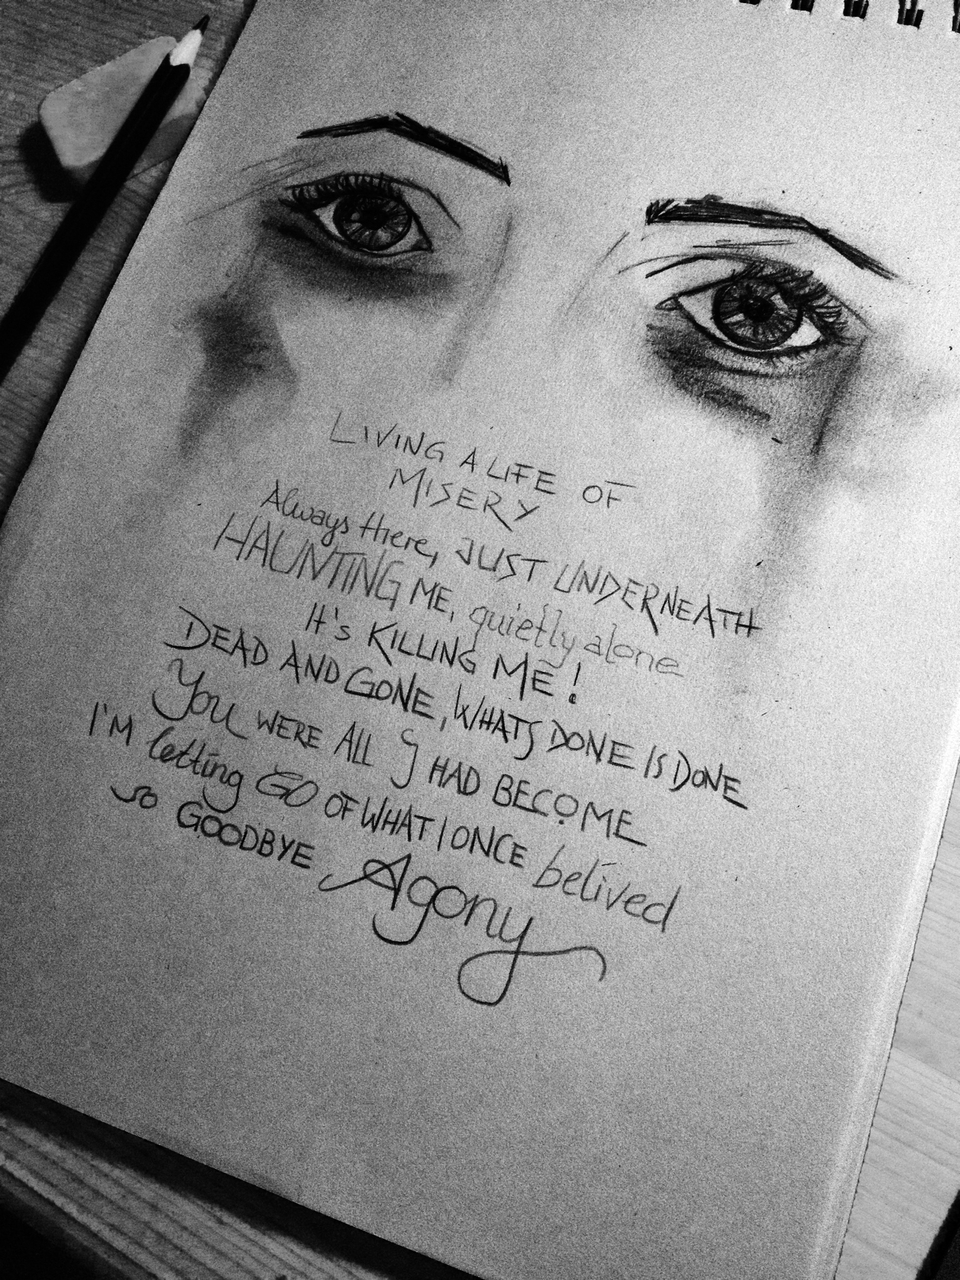 LIVING A LIFE OF
MISERY
Always there, JUST UNDERNEATH
HAUNTING ME, quietly alone
It's KILLING ME!
DEAD AND GONE, WHATS DONE IS DONE
YOU WERE ALL I HAD BECOME
I'M letting GO OF WHAT I ONCE belived
so GOODBYE Agony